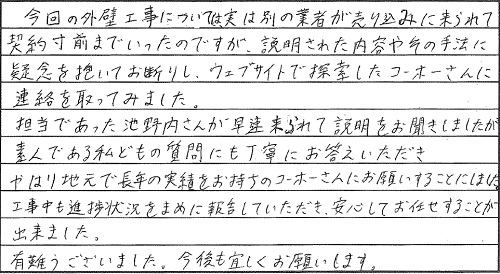 今回の外壁工事については実は別の業者が売り込みに来られて
契約寸前までいったのですが、説明された内容やその手法に
疑念を抱いてお断りし、ウェブサイトで探索したコーホーさんに
連絡を取ってみました。
担当であった池野内さんが早速来られて説明をお聞きしましたが
素人である私どもの質問にも丁寧にお答えいただき
やはり地元で長年の実績をお持ちのコーホーさんにお願いすることにしました
工事中も進捗状況をまめに報告していただき、安心してお任せすることが
出来ました。
有難うございました。今後も宜しくお願いします。